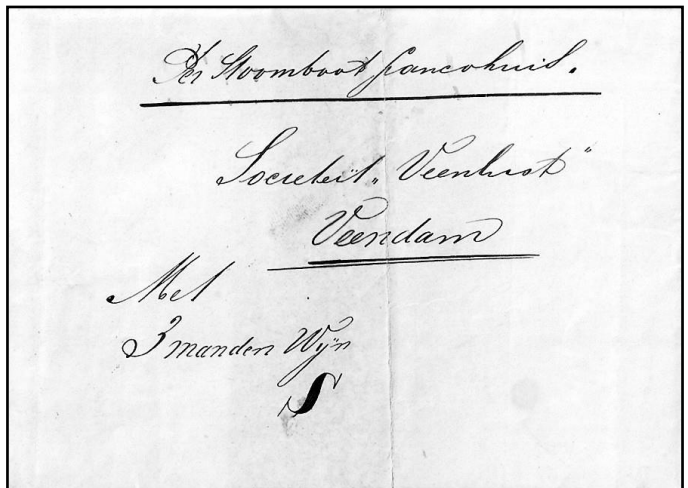 Per Stoomboot francohuis.
Societeit „Veenlust"
Veendam
Met
3 manden Wijn
S